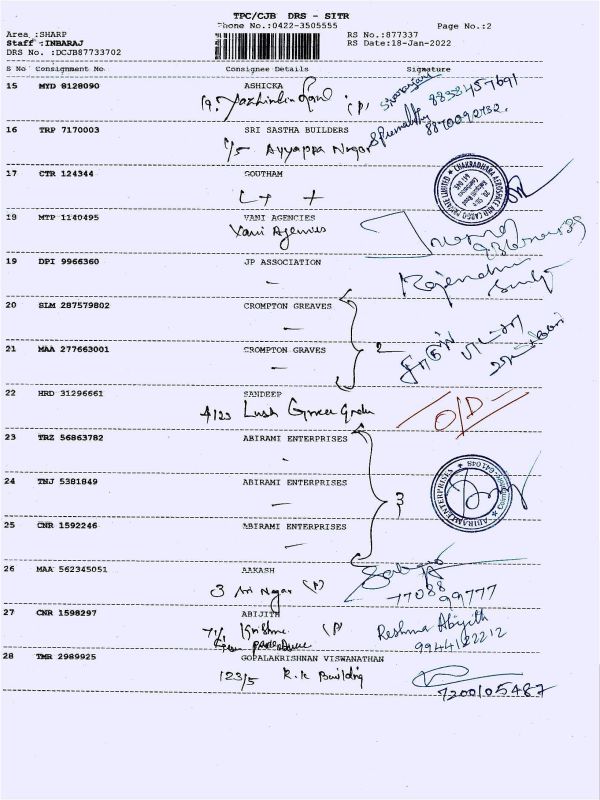 TPC/CJB DRS - SITR
Phone No.:0422-3505555
Page No.:2
Area :SHARP
RS No.:877337
Staff :INBARAJ
RS Date:18-Jan-2022
DRS No. :DCJB87733702
S No Consignment No Consignee Details Signature
15 MYD 8128090 ASHICKA
(P)
8838457691
8870092732.
16 TRP 7170003 SRI SASTHA BUILDERS
1/5 Ayyappa Nagar
17 CTR 124344 GOUTHAM
CHAKRADHARA AEROSPACE AND CARGO PRIVATE LIMITED
18 MTP 1140495 VANI AGENCIES
Vani Agencies
19 DPI 9966360 JP ASSOCIATION
Rajendran
20 SLM 287579802 CROMPTON GREAVES
21 MAA 277663001 CROMPTON GRAVES
2
22 HRD 31296661 SANDEEP
A123 Lush Green
O/D
23 TRZ 56863782 ABIRAMI ENTERPRISES
24 TNJ 5381849 ABIRAMI ENTERPRISES
3
ABIRAMI ENTERPRISES
25 CNR 1592246 ABIRAMI ENTERPRISES
26 MAA 562345051 AAKASH
3 Sri Nagar (P)
77088
99777
27 CNR 1598297 ABIJITH
(P)
Reshma Abijith
9944122212
28 TMR 2989925 GOPALAKRISHNAN VISWANATHAN
123/5 R.K Building
7200105487